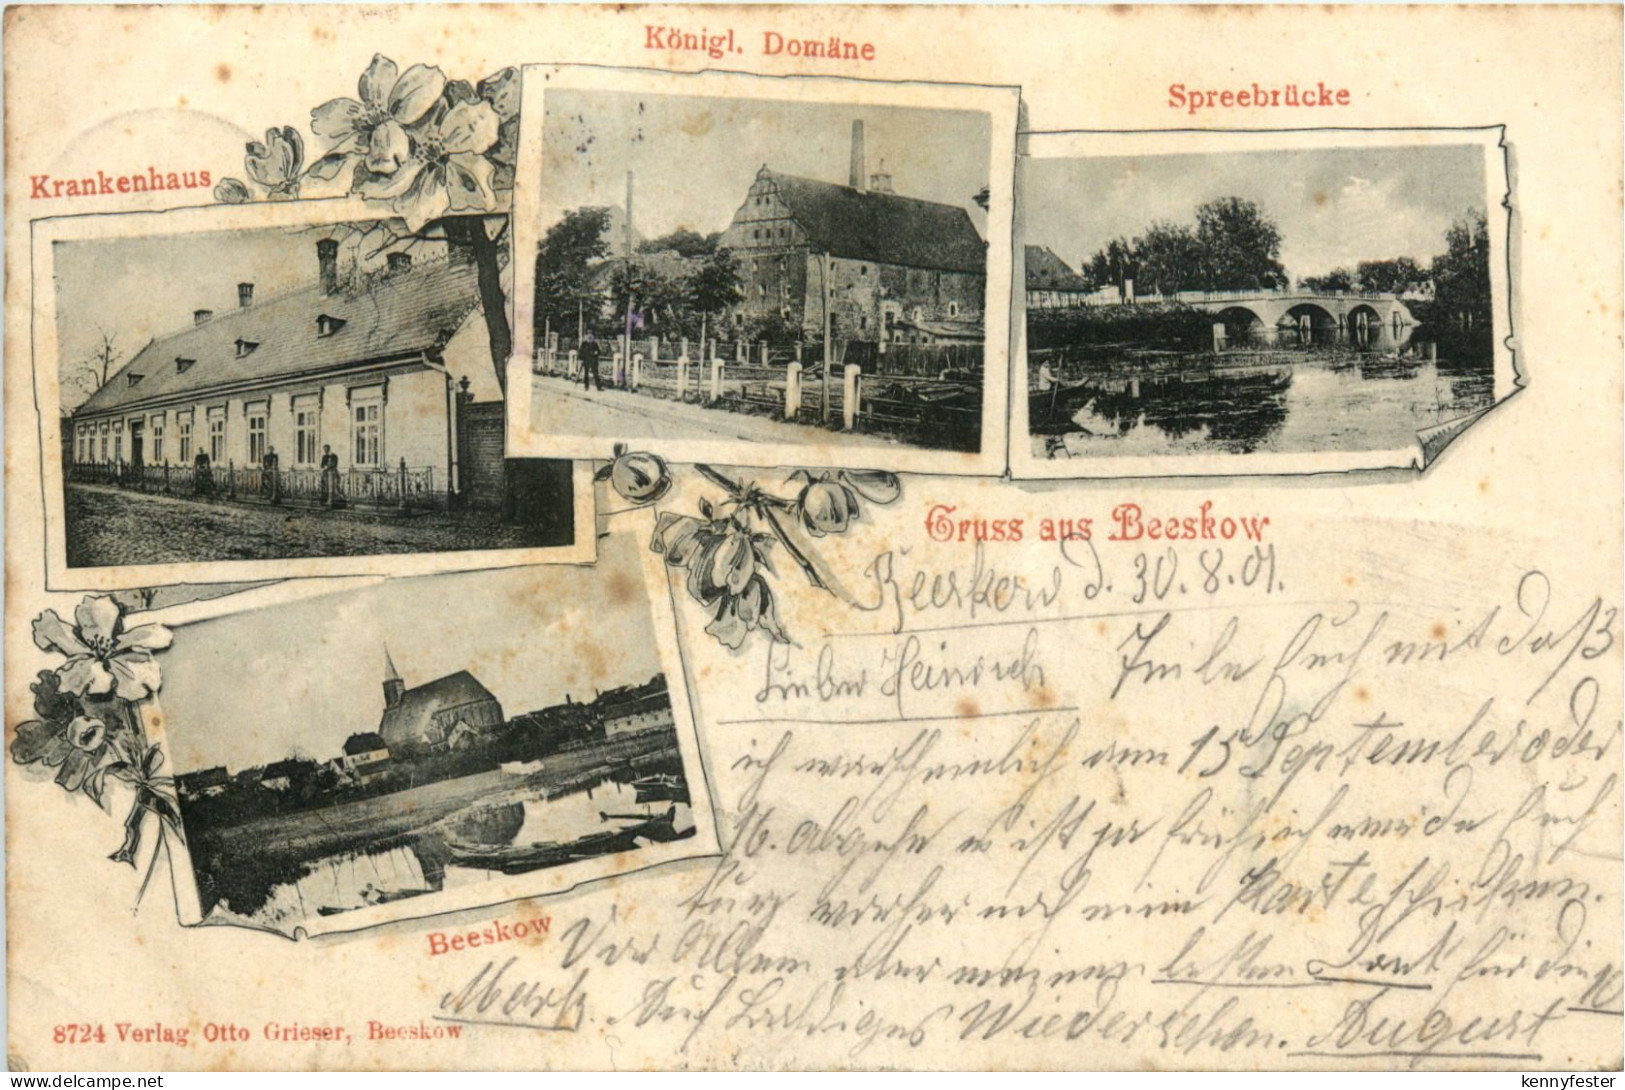 Königl. Domäne
Spreebrücke
Krankenhaus
Gruss aus Beeskow
Beeskow d. 30.8.01.
Lieber Heinrich Teile Euch mit daß
ich warscheinlich am 15 September oder
16. abgehe es ist ja früh ich werde Euch
kurz vorher noch eine Karte schicken.
Vor Allem aber meinen besten Dank für die 10
Mark. Auf baldiges Wiedersehen. August
Beeskow
8724 Verlag Otto Grieser, Beeskow
kennyfester